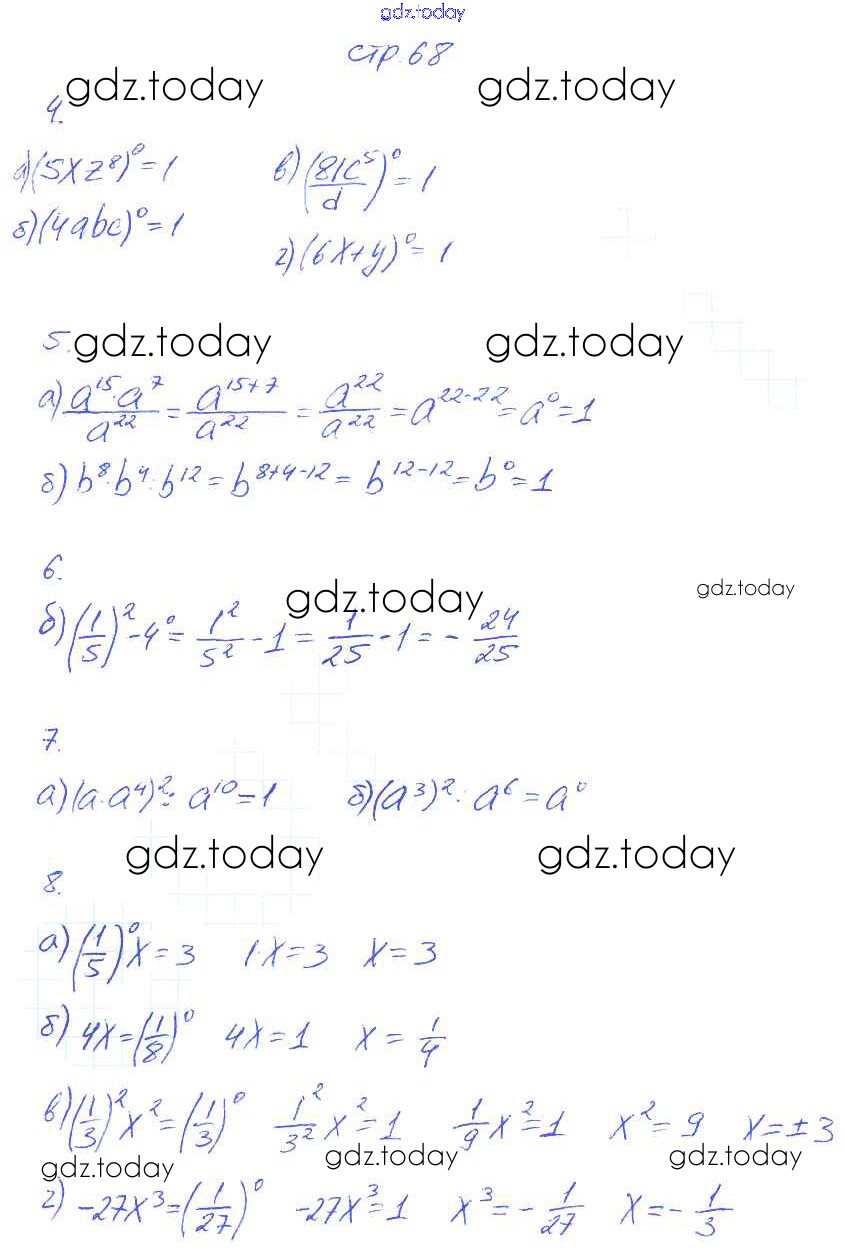 gdz.today
стр. 68
gdz.today gdz.today
4.
а) (5xz⁸)⁰ = 1 в) (81c⁵/d)⁰ = 1
б) (4abc)⁰ = 1
г) (6x+y)⁰ = 1
5. gdz.today gdz.today
а) a¹⁵·a⁷/a²² = a¹⁵⁺⁷/a²² = a²²/a²² = a²²⁻²² = a⁰ = 1
б) b⁸·b⁴:b¹² = b⁸⁺⁴⁻¹² = b¹²⁻¹² = b⁰ = 1
6.
gdz.today gdz.today
б) (1/5)² - 4⁰ = 1²/5² - 1 = 1/25 - 1 = - 24/25
7.
а) (a·a⁴)² : a¹⁰ = 1 б) (a³)² : a⁶ = a⁰
gdz.today gdz.today
8.
а) (1/5)⁰x = 3 1·x = 3 x = 3
б) 4x = (1/8)⁰ 4x = 1 x = 1/4
в) (1/3)²x² = (1/3)⁰ 1²/3² x² = 1 1/9 x² = 1 x² = 9 x = ± 3
gdz.today gdz.today gdz.today
г) -27x³ = (1/27)⁰ -27x³ = 1 x³ = - 1/27 x = - 1/3